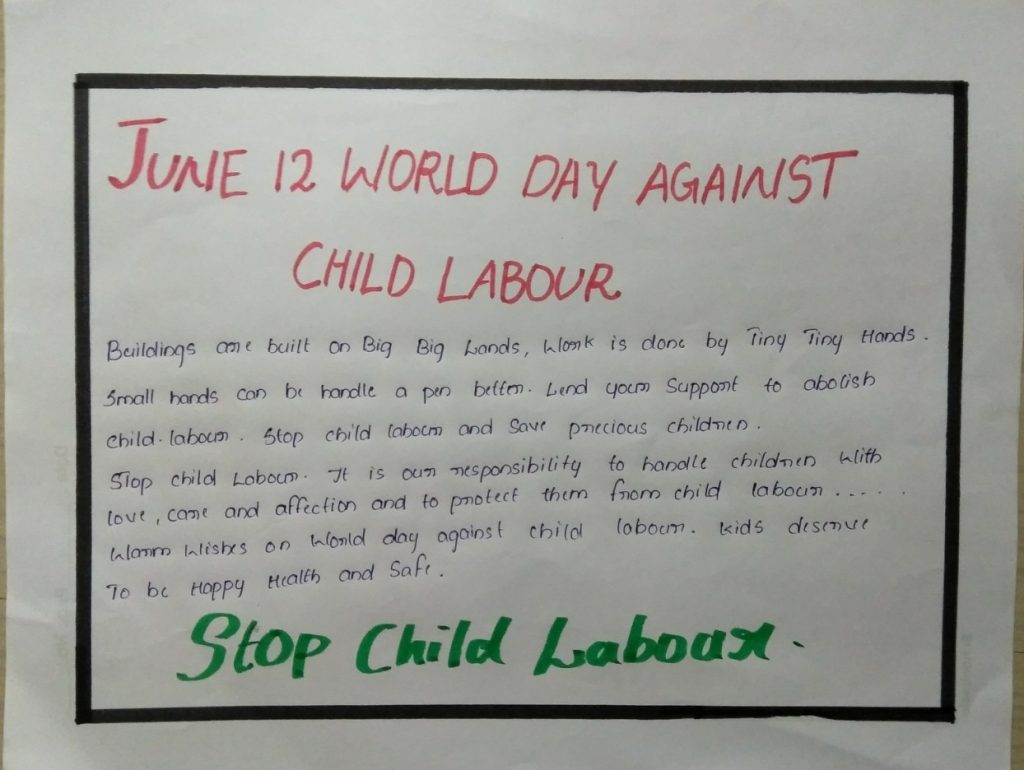 JUNE 12 WORLD DAY AGAINST
CHILD LABOUR
Buildings are built on Big Big Lands, Work is done by Tiny Tiny Hands.
Small hands can be handle a pen better. Lend your Support to abolish
child labour. Stop child labour and Save precious children.
Stop child Labour. It is our responsibility to handle children With
love, care and affection and to protect them from child labour......
Warm Wishes on World day against child labour. kids deserve
To be Happy Health and Safe.
Stop Child Labour.